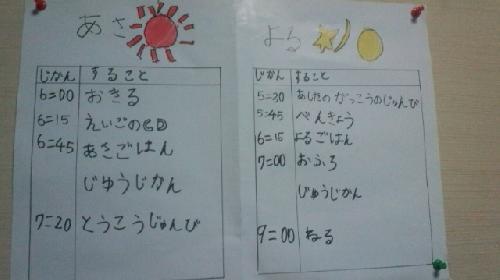 あさ
じかん すること
6=00 おきる
6=15 えいごのCD
6=45 あさごはん
じゆうじかん
7=20 とうこうじゅんび
よる
じかん すること
5=20 あしたの がっこうのじゅんび
5=45 べんきょう
6=15 よるごはん
7=00 おふろ
じゆうじかん
9=00 ねる